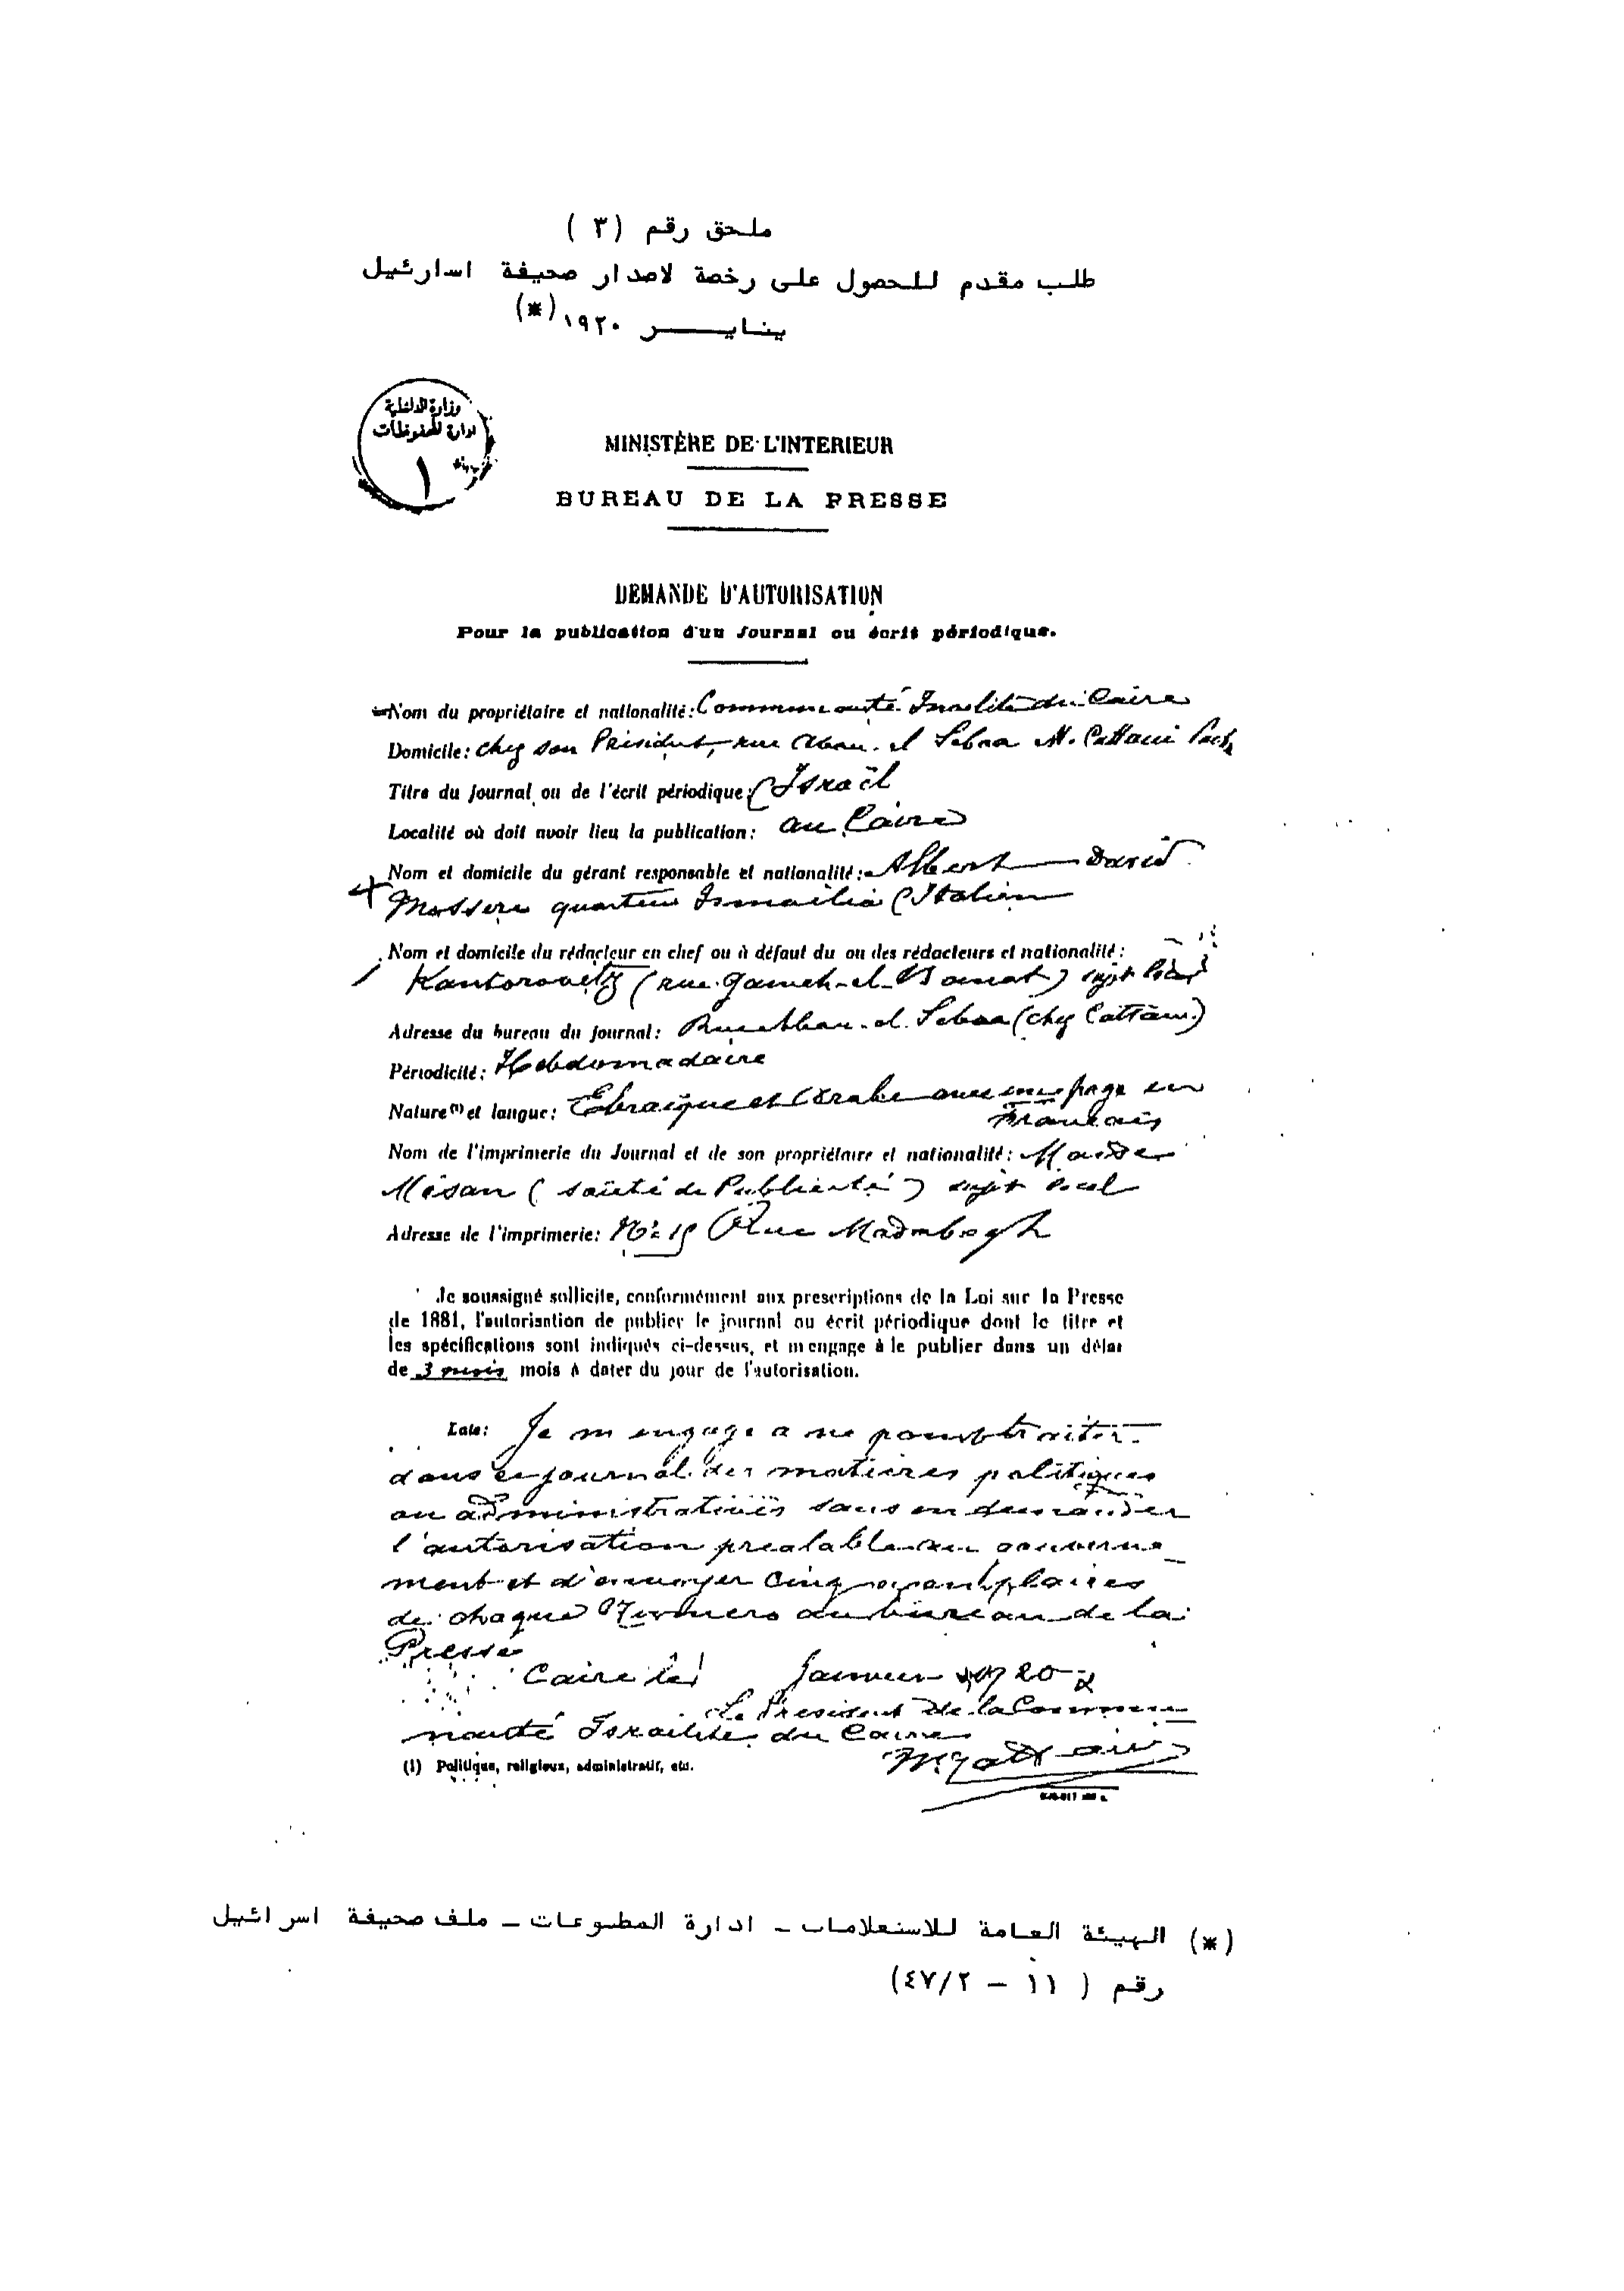 ملحق رقم (٣)
طلب مقدم للحصول على رخصة لاصدار صحيفة اسارئيل
ينايـــر ١٩٢٠(*)
وزارة الداخلية
ادارة المحفوظات
١
MINISTÈRE DE L'INTERIEUR
BUREAU DE LA PRESSE
DEMANDE D'AUTORISATION
Pour la publication d'un Journal ou écrit périodique.
Nom du propriétaire et nationalité: Communauté Israelite du Caire
Domicile: chez son Président, rue Abou. el Sebaa M. Cattaui Pach
Titre du Journal ou de l'écrit périodique: Israël
Localité où doit avoir lieu la publication: au Caire
Nom et domicile du gérant responsable et nationalité: Albert David
Mosseri quartier Ismailia (Italien
Nom et domicile du rédacteur en chef ou à défaut du ou des rédacteurs et nationalité:
Kantorovitz (rue Gameh-el-Banat) sujet local
Adresse du bureau du journal: Rue Abou-el-Sebaa (chez Cattaui)
Périodicité: Hebdomadaire
Nature(1) et langue: Ebraïque et Arabe avec une page en
Francais
Nom de l'imprimerie du Journal et de son propriétaire et nationalité:
Misan (société de Publicité) sujet local
Adresse de l'imprimerie: No 15 Rue Madabegh
Je soussigné sollicite, conformément aux prescriptions de la Loi sur la Presse
de 1881, l'autorisation de publier le journal ou écrit périodique dont le titre et
les spécifications sont indiqués ci-dessus, et m'engage à le publier dans un délai
de 3 mois mois à dater du jour de l'autorisation.
Date: Je m engage a ne pas traiter
dans ce journal des matières politiques
ou administratives sans en demander
l'autorisation prealable au gouverne
ment et d'envoyer cinq exemplaires
de chaque Numero au bureau de la
Presse
Caire le Janvier 1920
Le President de la Commu
nauté Israelite du Caire
(1) Politique, religieux, administratif, etc.
(*) الهيئة العامة للاستعلامات - ادارة المطبوعات - ملف صحيفة اسرائيل
رقم ( ١١ - ٤٧/٢)